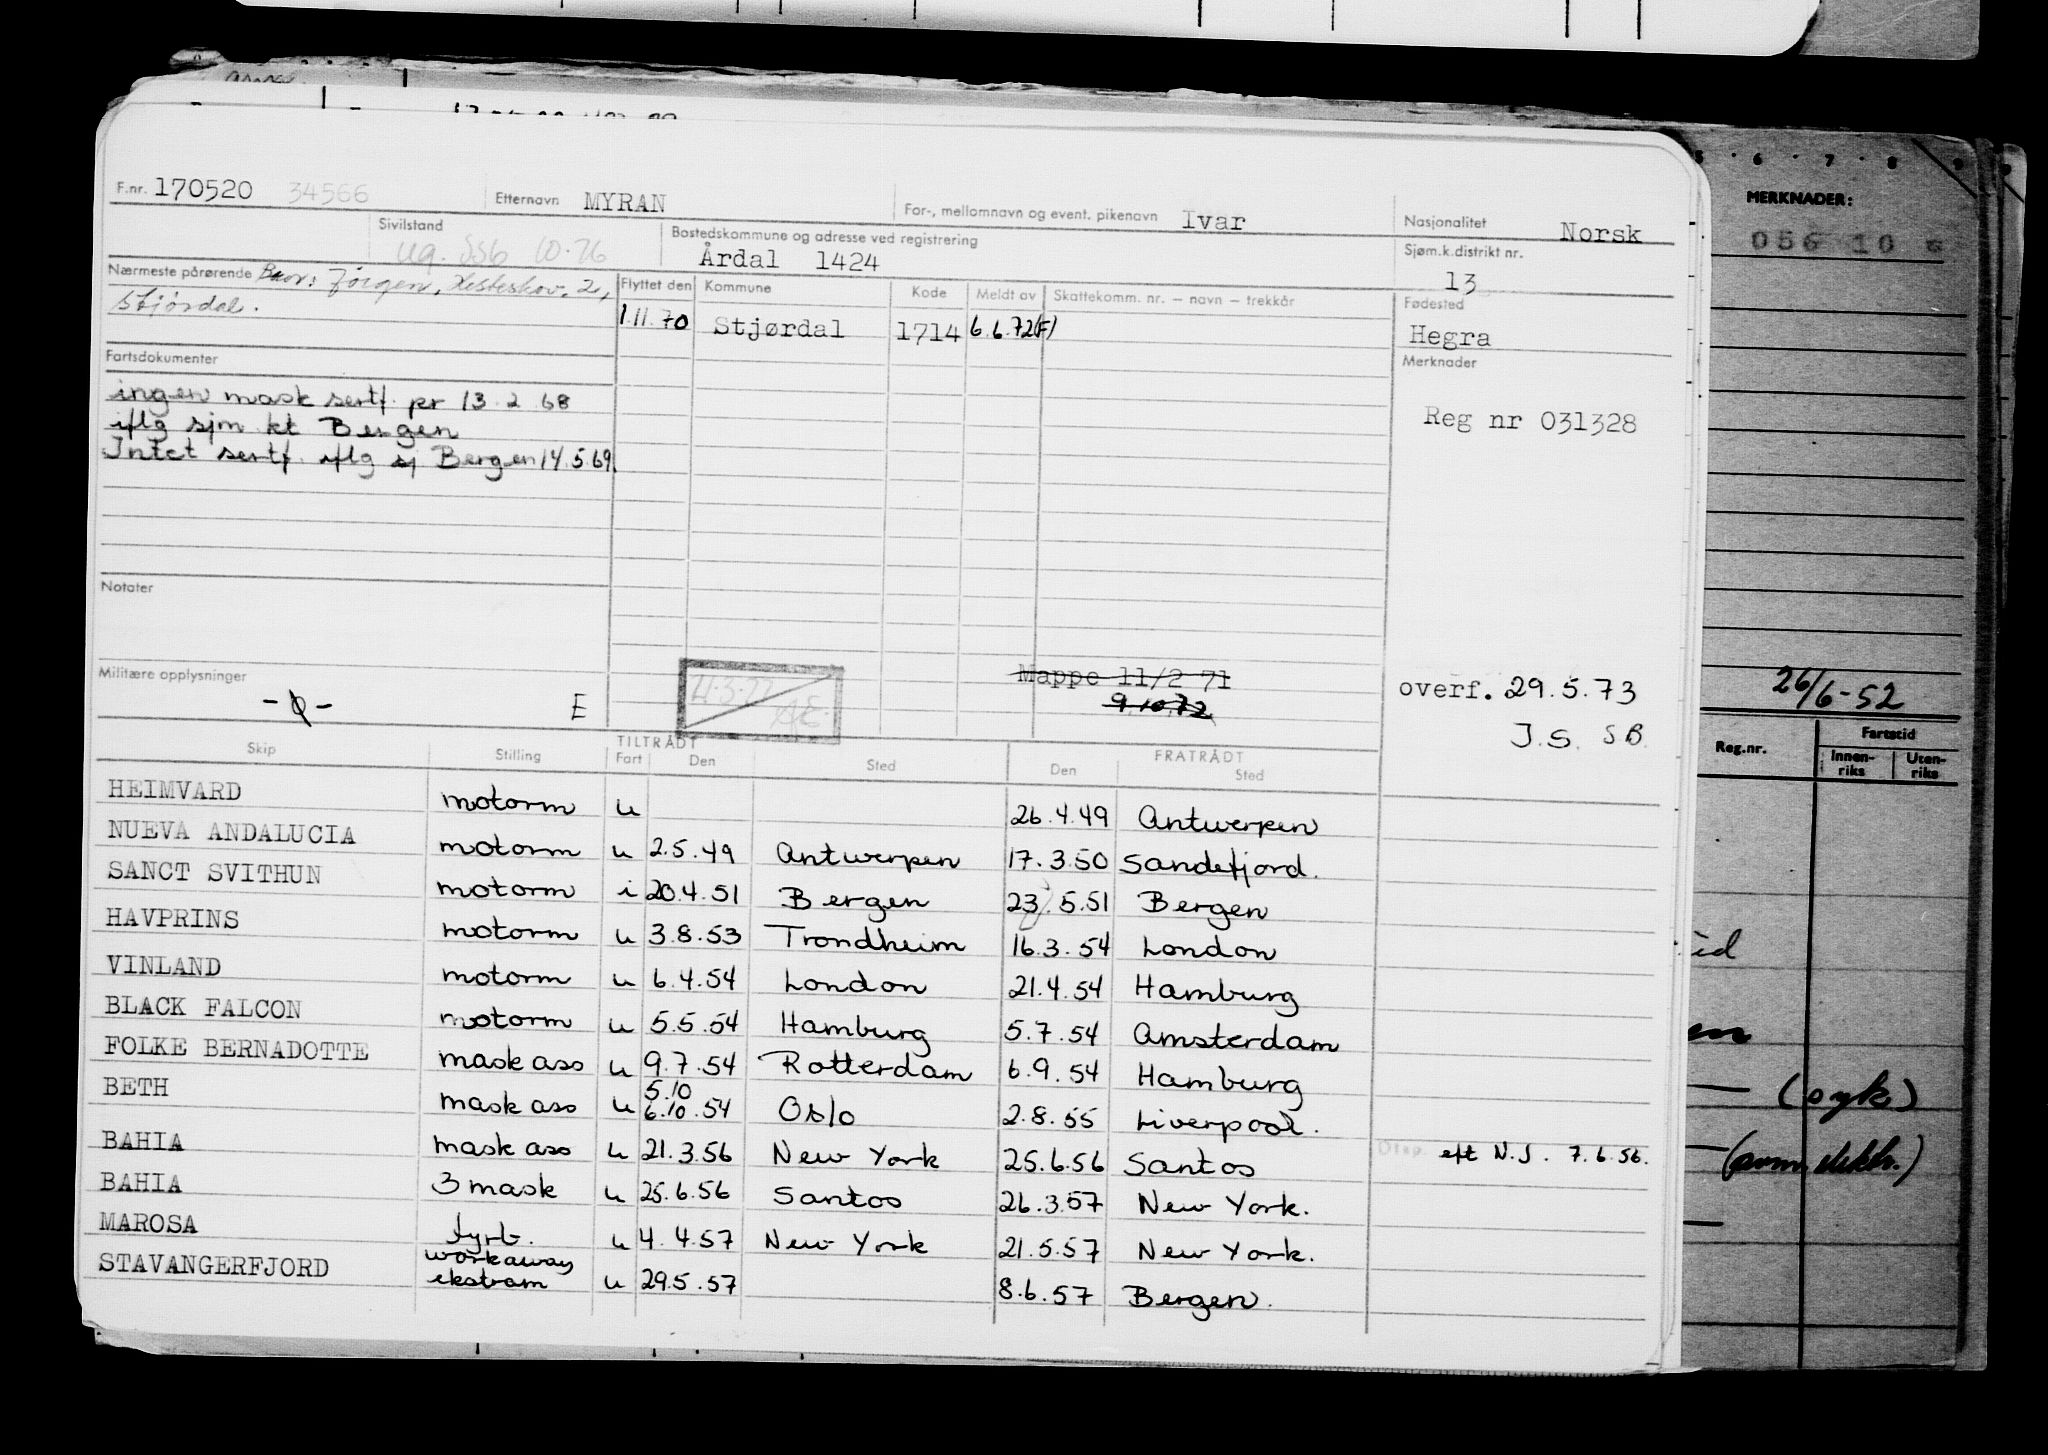 F.nr. 170520 34566 Etternavn MYRAN For-, mellomnavn og event. pikenavn Ivar Nasjonalitet Norsk
Sivilstand ug. SSb 10.76 Bostedskommune og adresse ved registrering Årdal 1424 Sjøm.k.distrikt nr. 13
Nærmeste pårørende Bror: Jørgen, Hesteskov. 2, Stjørdal.
Flyttet den Kommune Kode Meldt av Skattekomm. nr. — navn — trekkår Fødested
1.11.70 Stjørdal 1714 6.6.72(F) Hegra
Fartsdokumenter Merknader
ingen mask sertf. pr 13 2 68
iflg sjm kt Bergen Reg nr 031328
Intet sertf. iflg sj Bergen 14.5.69.
Notater
Militære opplysninger
-0- E
Mappe 11/2 71
9.10.72
overf. 29.5.73
J.S. S.B.
Skip Stilling TILTRÅDT Fart Den Sted FRATRÅDT Den Sted
HEIMVARD motorm u 26.4.49 Antwerpen
NUEVA ANDALUCIA motorm u 2.5.49 Antwerpen 17.3.50 Sandefjord.
SANCT SVITHUN motorm i 20.4.51 Bergen 23.5.51 Bergen
HAVPRINS motorm u 3.8.53 Trondheim 16.3.54 London
VINLAND motorm u 6.4.54 London 21.4.54 Hamburg
BLACK FALCON motorm u 5.5.54 Hamburg 5.7.54 Amsterdam
FOLKE BERNADOTTE mask ass u 9.7.54 Rotterdam 6.9.54 Hamburg
BETH mask ass u 5.10 6.10.54 Oslo 2.8.55 Liverpool.
BAHIA mask ass u 21.3.56 New York 25.6.56 Santos Disp. eft N.J. 7.6.56.
BAHIA 3 mask u 25.6.56 Santos 26.3.57 New York.
MAROSA fyrb. u 4.4.57 New York 21.5.57 New York.
STAVANGERFJORD workaway ekstram u 29.5.57 8.6.57 Bergen.
5 · 6 · 7 · 8 · 9
MERKNADER:
056 10
26/6-52
Reg.nr. Fartstid
Innen-riks Uten-riks
(syk)